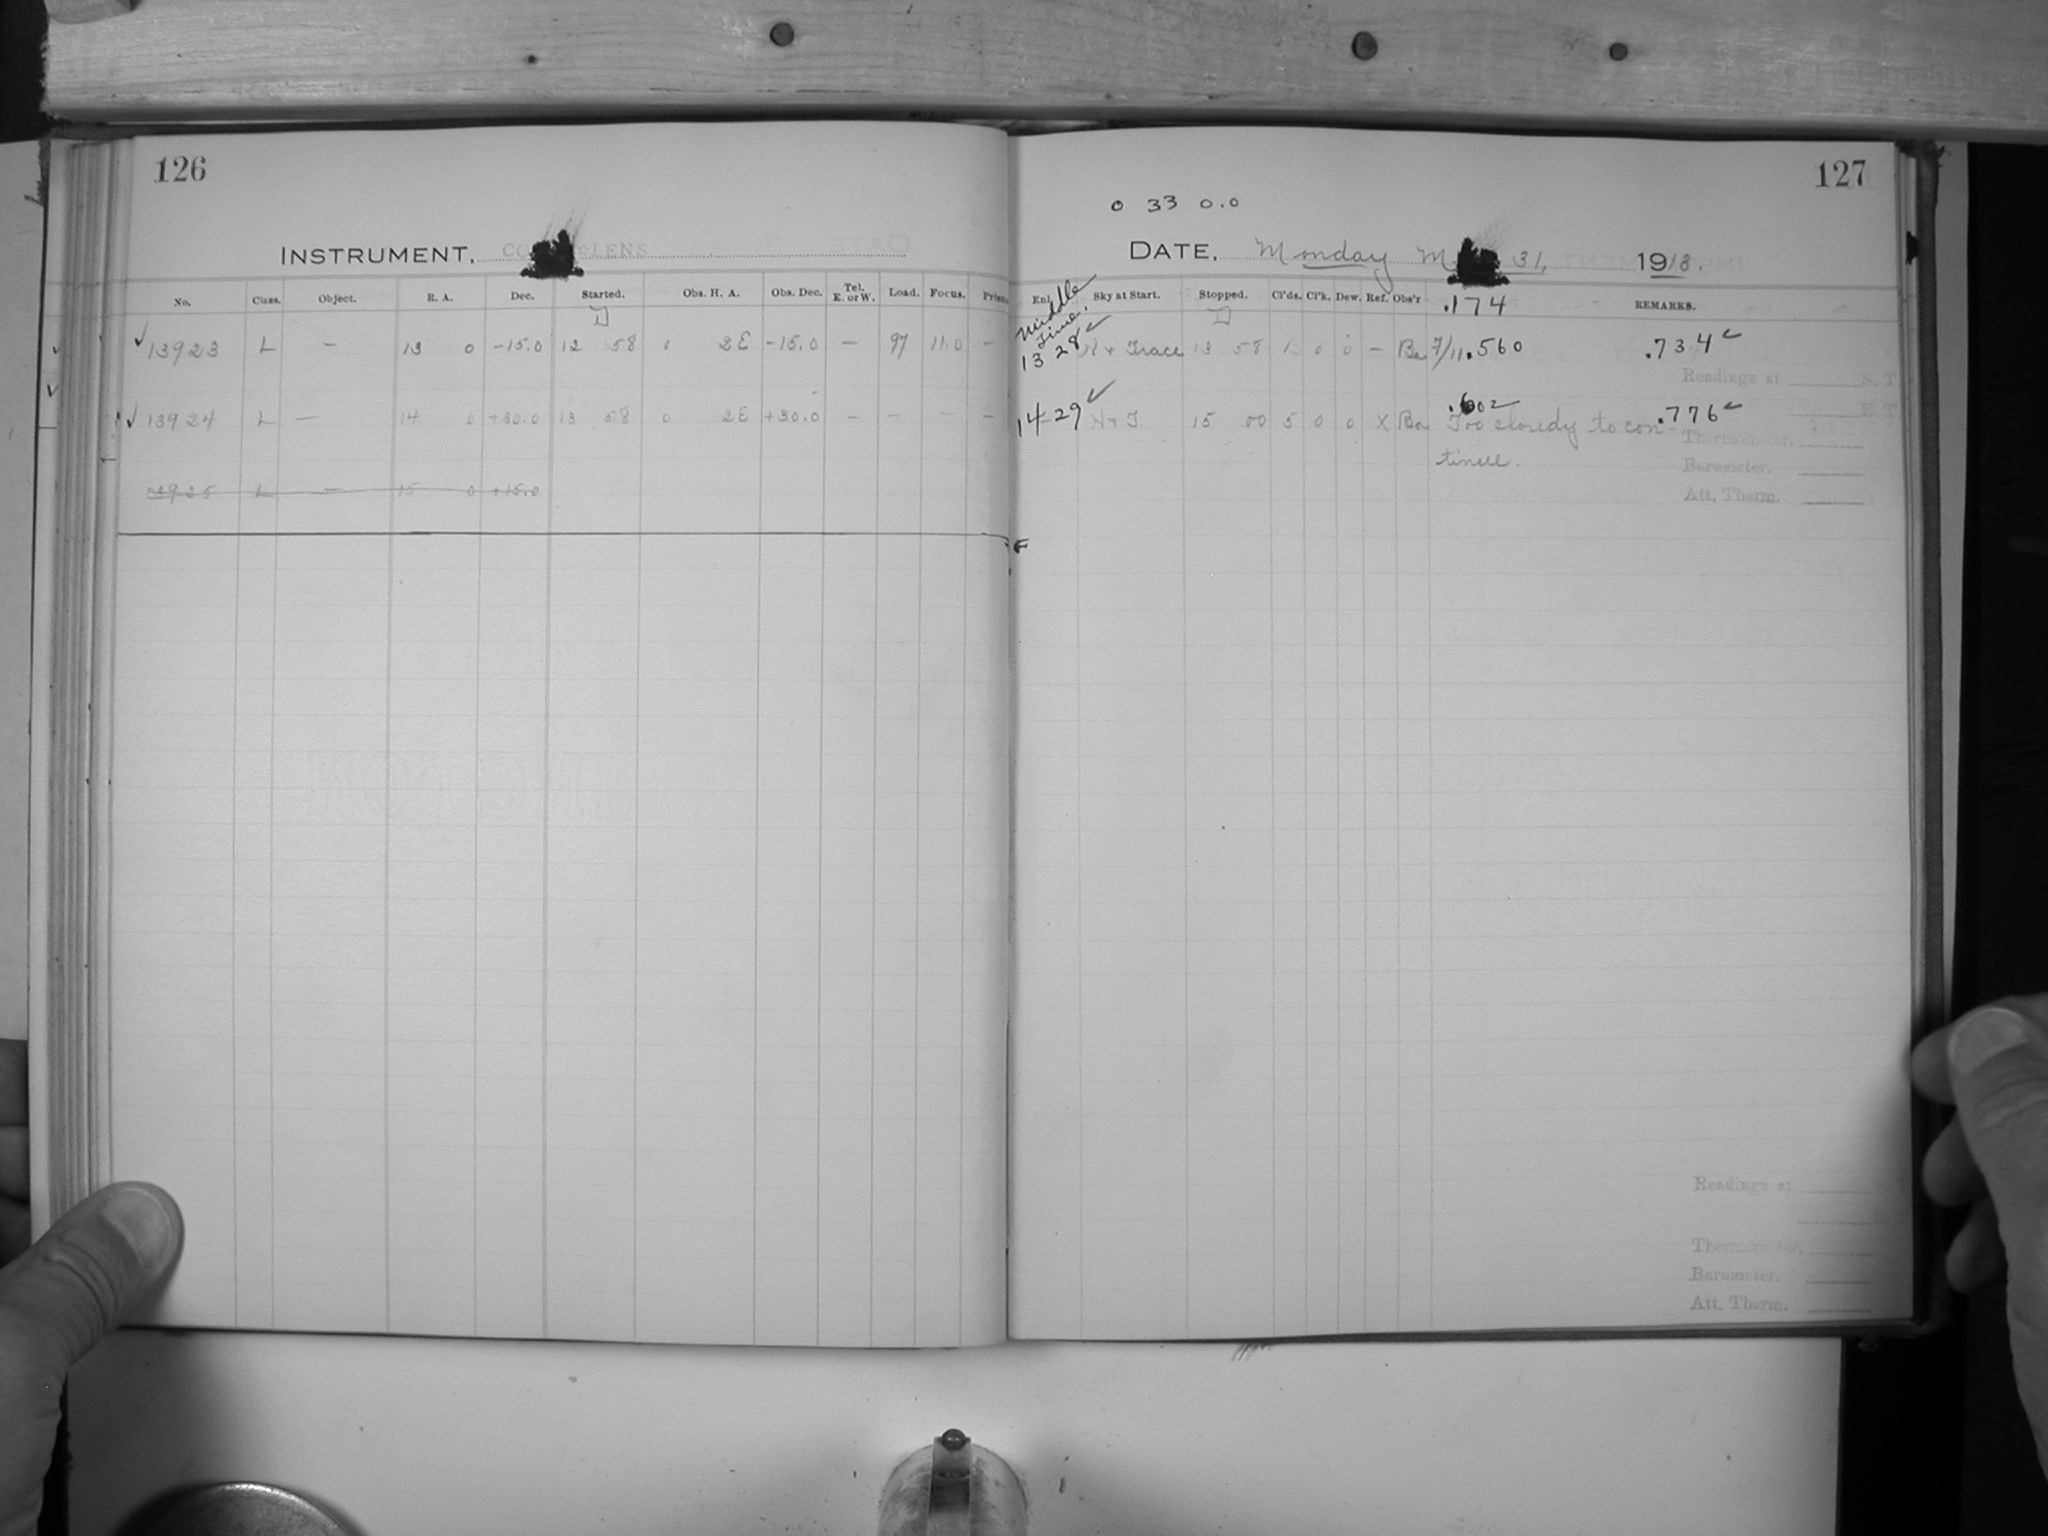 126
INSTRUMENT. LENS
No. Class. Object. R. A. Dec. Started. Obs. H. A. Obs. Dec. Tel. E. or W. Load. Focus.
13923 L — 13 0 -15.0 12 58 0 2E -15.0 — 97 11.0 —
13924 L — 14 0 +30.0 13 58 0 2E +30.0 — — — —
13925 L — 15 0 +15.0
127
0 33 0.0
DATE. Monday 31, 1913.
Enl. Sky at Start. Stopped. Cl'ds. Cl'k. Dew. Ref. Obs'r .174 REMARKS.
Middle Time.
13 28 H + Trace 13 58 1 0 0 — Ba 7/11 .560 .734
Readings at S. T.
14 29 H + T 15 00 5 0 0 X Ba .602 .776
Too cloudy to con-
tinue.
Thermometer.
Barometer.
Att. Therm.
Readings at
Thermometer.
Barometer.
Att. Therm.